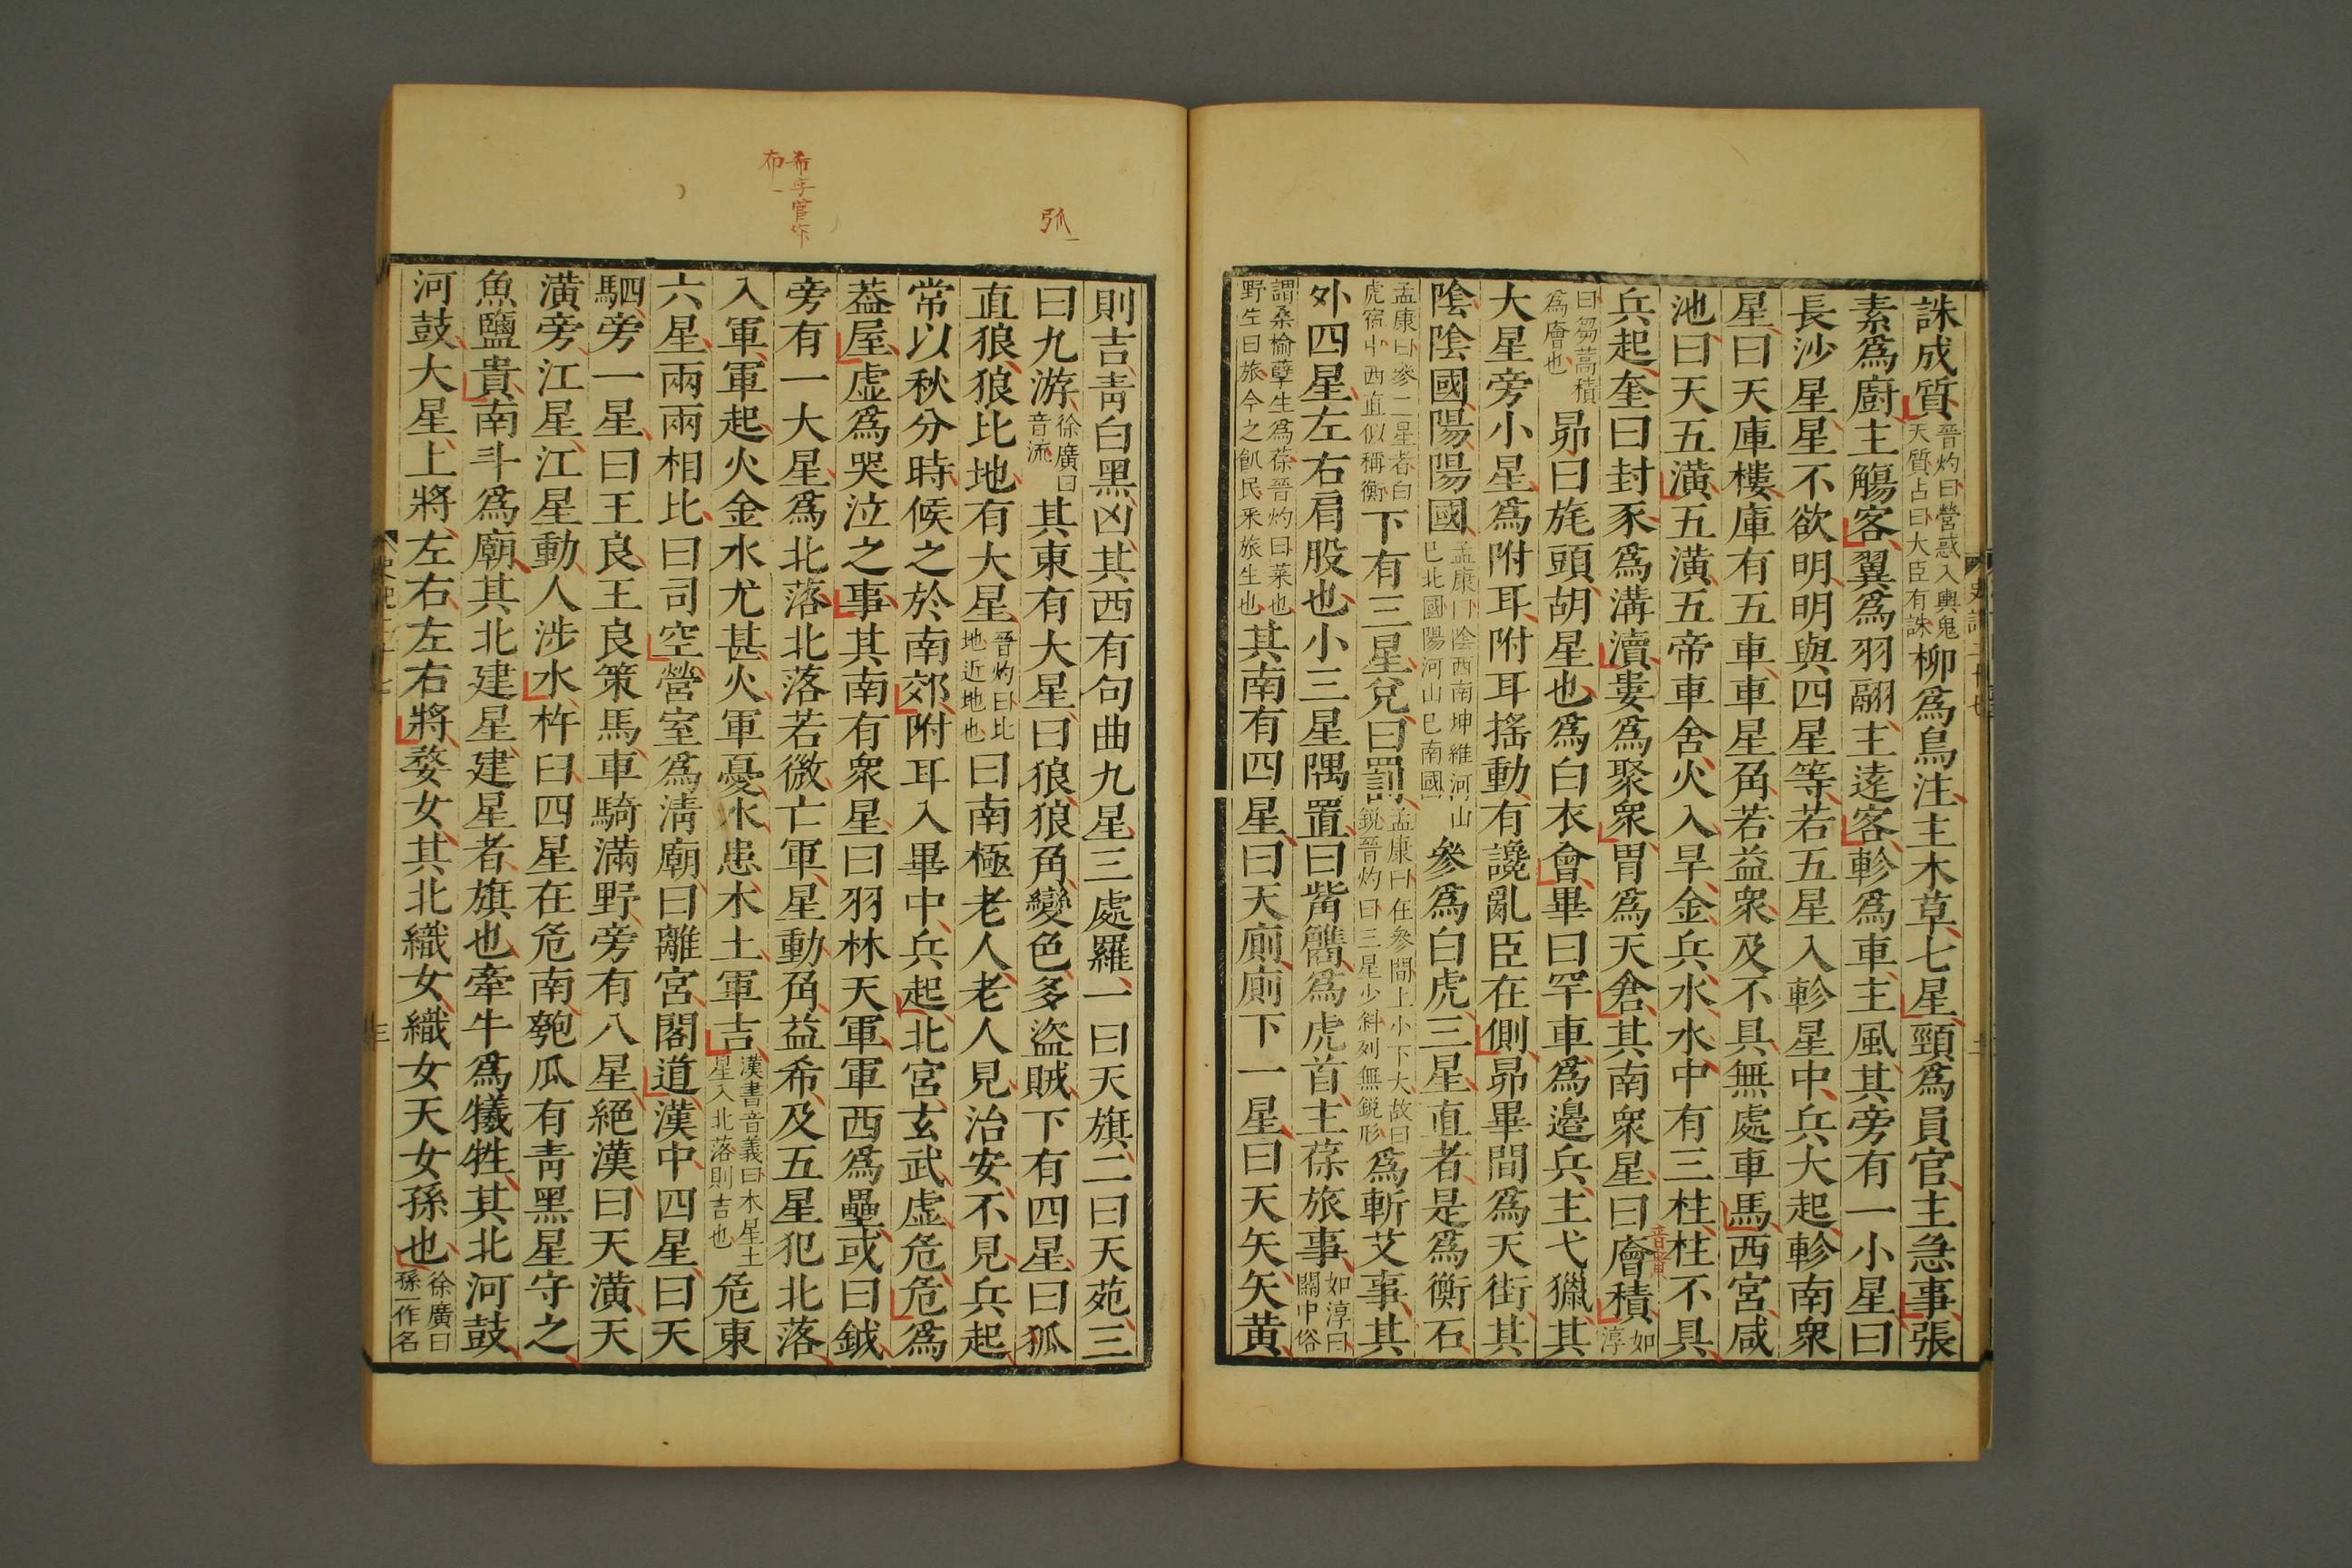 誅成質晉灼曰營惑入輿鬼天質占曰大臣有誅柳爲鳥注主木草七星頸爲員官主急事張
素爲廚主觴客翼爲羽翮主逺客軫爲車主風其旁有一小星曰
長沙星星不欲明明與四星等若五星入軫星中兵大起軫南衆
星曰天庫樓庫有五車車星角若益衆及不具無處車馬西宮咸
池曰天五潢五潢五帝車舍火入旱金兵水水中有三柱柱不具
兵起奎曰封豕爲溝瀆婁爲聚衆胃爲天倉其南衆星曰廥積如淳
曰芻藁積爲廥也昴曰旄頭胡星也爲白衣會畢曰罕車爲邊兵主弋獵其
大星旁小星爲附耳附耳搖動有讒亂臣在側昴畢間爲天街其
陰陰國陽陽國孟康曰陰西南坤維河山已北國陽河山已南國參爲白虎三星直者是爲衡石
孟康曰參二星者白虎宿中西直似稱衡下有三星兌曰罰孟康曰在參間上小下大故曰銳晉灼曰三星少斜列無銳形爲斬艾事其
外四星左右肩股也小三星隅置曰觜觿爲虎首主葆旅事如淳曰關中俗
謂桑榆孽生爲葆晉灼曰菜也野生曰旅今之飢民釆旅生也其南有四星曰天廁廁下一星曰天矢矢黃
則吉靑白黑凶其西有句曲九星三處羅一曰天旗二曰天苑三
曰九游徐廣曰音流其東有大星曰狼狼角變色多盜賊下有四星曰狐
直狼狼比地有大星晉灼曰比地近地也曰南極老人老人見治安不見兵起
常以秋分時候之於南郊附耳入畢中兵起北宮玄武虛危危爲
葢屋虛爲哭泣之事其南有衆星曰羽林天軍軍西爲壘或曰鉞
旁有一大星爲北落北落若微亡軍星動角益希及五星犯北落
入軍軍起火金水尤甚火軍憂水患木土軍吉漢書音義曰木星土星入北落則吉也危東
六星兩兩相比曰司空營室爲淸廟曰離宮閣道漢中四星曰天
駟旁一星曰王良王良策馬車騎滿野旁有八星絕漢曰天潢天
潢旁江星江星動人涉水杵臼四星在危南匏瓜有靑黑星守之
魚鹽貴南斗爲廟其北建星建星者旗也牽牛爲犧牲其北河鼓
河鼓大星上將左右左右將婺女其北織女織女天女孫也徐廣曰孫一作名
弧
希字官作
布
音膾